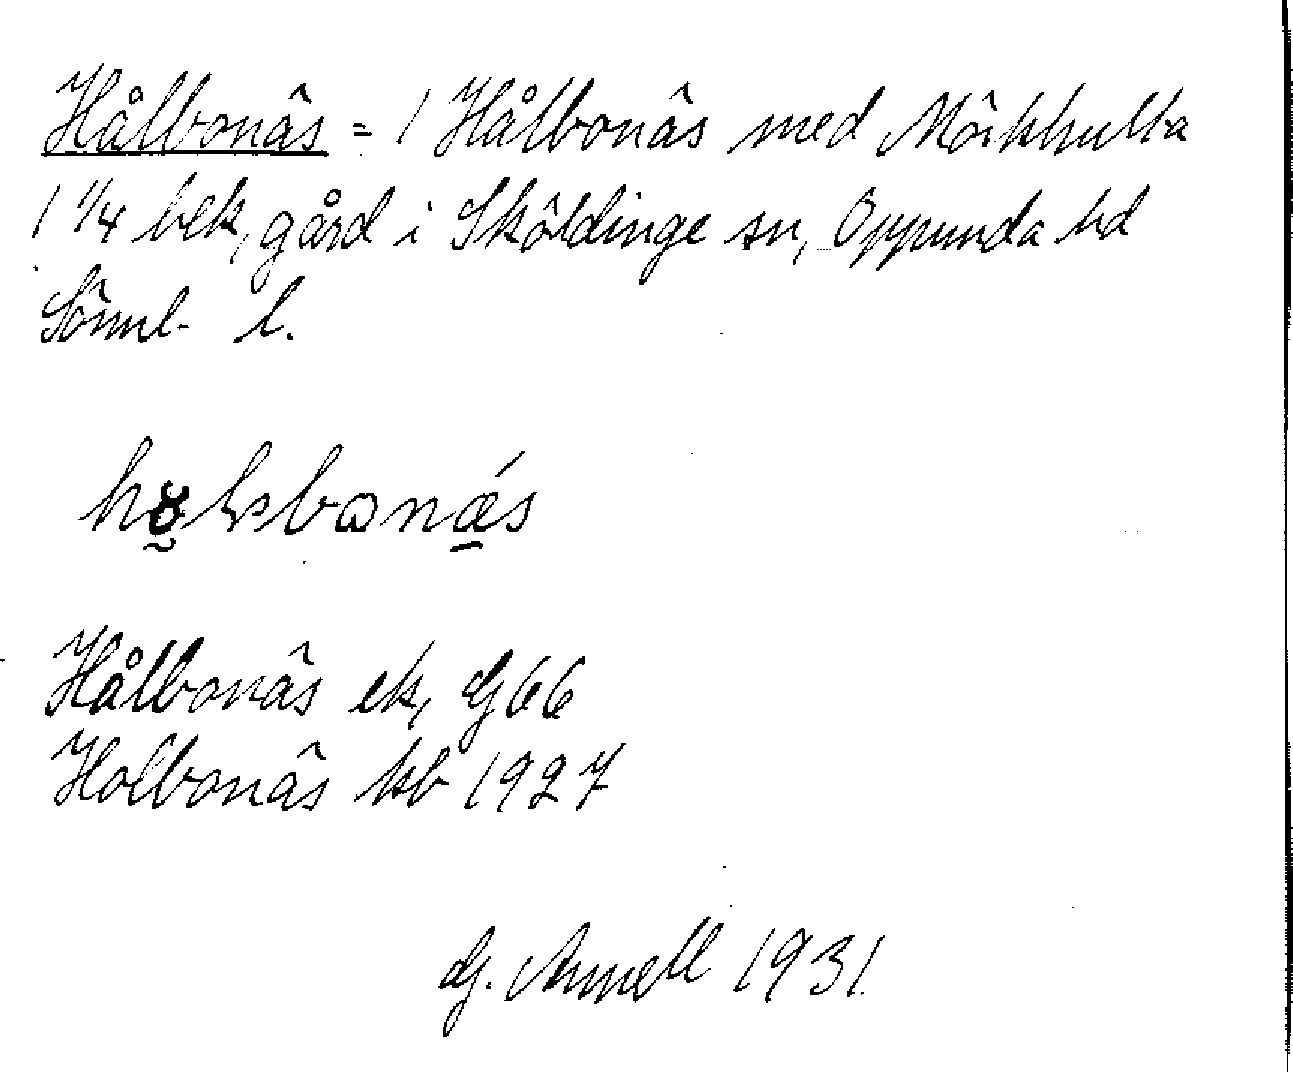 Hålbonäs = 1 Hålbonäs med Mörkhulta
1 1/4 bek, gård i Sköldinge sn, Oppunda hd
Söml. l.
Hålbonäs ek, Gj 66
Holbonäs kb 1927
Gj. Annell 1931